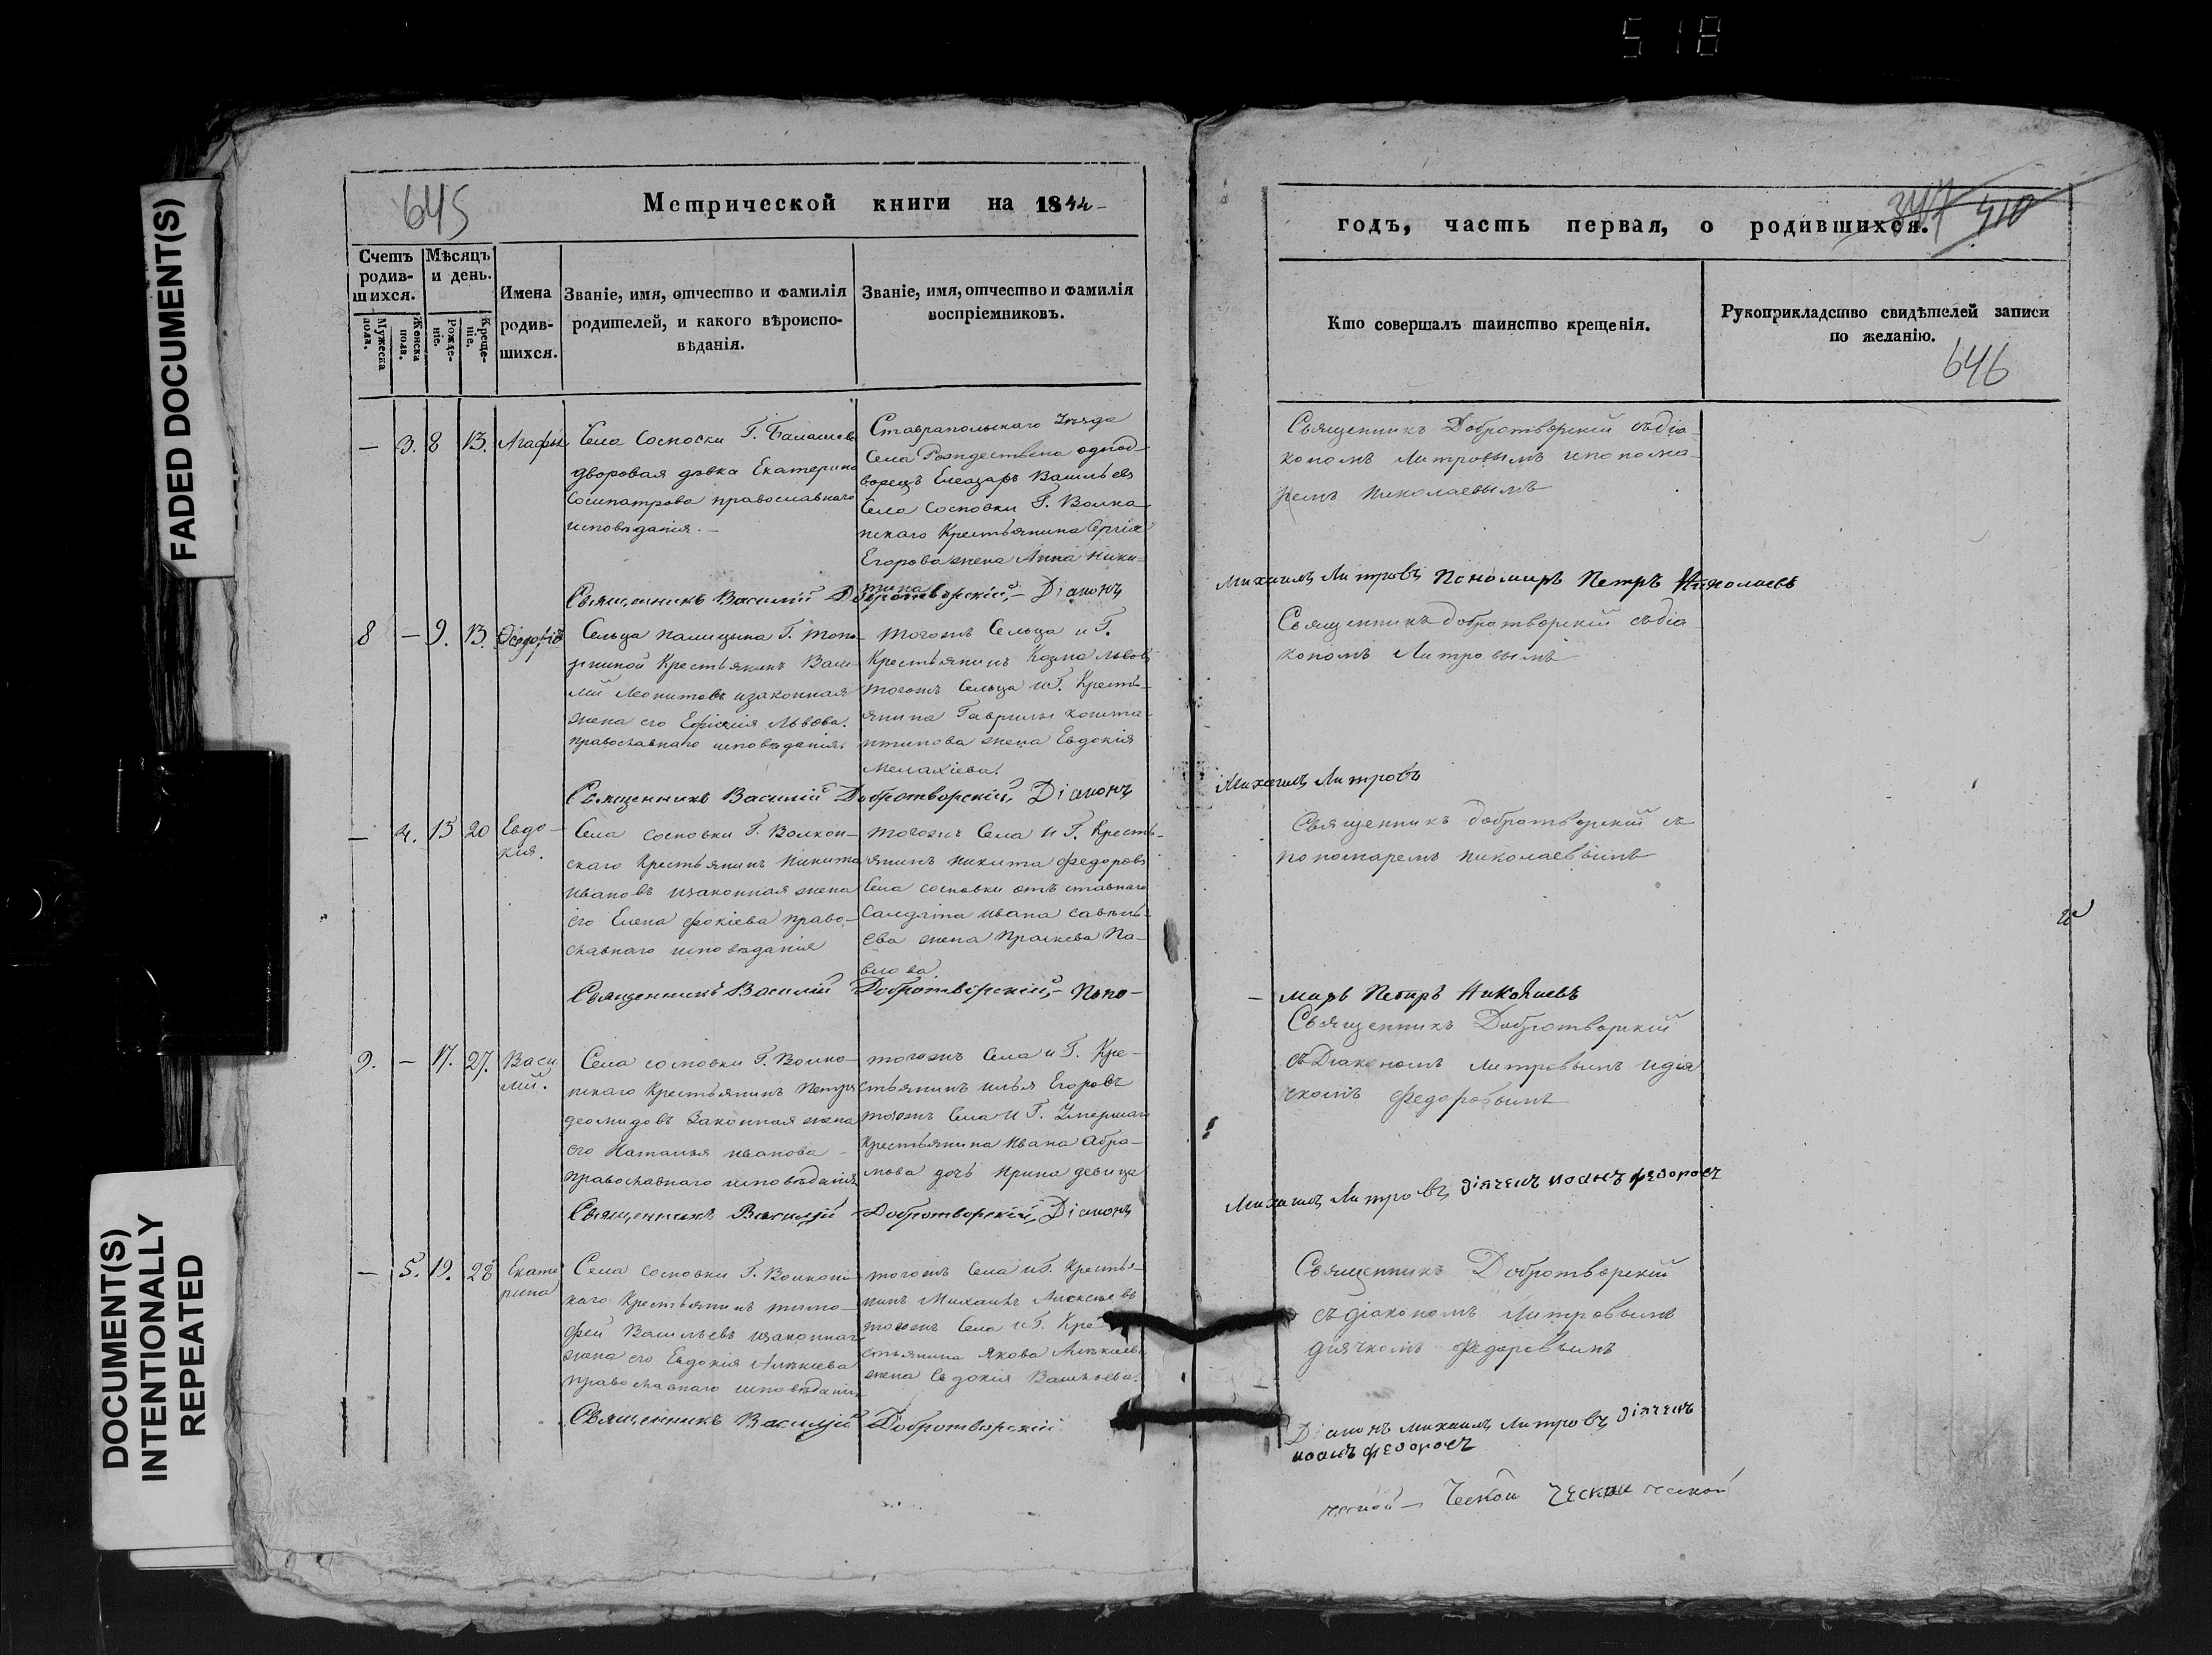 518
FADED DOCUMENT(S)
DOCUMENT(S)
INTENTIONALLY
REPEATED
645
Метрической книги на 1842
Счетъ родив-шихся.
Мужеска пола.
Женска пола.
Мѣсяцъ и день.
Рожде-ніе.
Креще-ніе.
Имена родив-шихся.
Званіе, имя, отчество и фамилія
родителей, и какого вѣроиспо-
вѣданія.
Званіе, имя, отчество и фамилія
воспріемниковъ.
— 3. 8 13. Агафья
Села Сосновки Г. Балашева
дворовая дѣвка Екатерина
Сосипатрова православнаго
исповѣданія. —
Ставрапольскаго Уѣзда
Села Рождествена однод-
ворецъ Елеазаръ Васильевъ
Села Сосновки Г. Волко
нскаго Крестьянина Сергія
Егорова жена Анна Ники-
тина
Священникъ Василій Добротворскій, — Діаконъ
8 — 9. 13.
Сельца палицына Г.
Крестьянинъ Васи-
лій Леонтовъ изаконная
жена его Львова.
православнаго исповѣданія.
тогожъ Сельца и Г.
Крестьянинъ Козма Львовъ
тогожъ Сельца и Г. Кресть-
янина Гаврилы конста-
нтинова жена Евдокія
Мелахіева.
Священникъ Василій Добротворскій, Діаконъ
— 4. 15 20 Евдо-
кія.
Села сосновки Г. Волкон-
скаго Крестьянинъ Никита
Ивановъ изаконная жена
его Елена фокіева право-
славнаго исповѣданія
тогожъ Села и Г. Кресть-
янинъ никита федоровъ
Села сосновки отъставнаго
Салдата ивана савель-
ева жена Праскева Па-
влова.
Священникъ Василій Добротворскій, — Поно-
9. — 17. 27. Васи
лій.
Села сосновки Г. Волко-
нскаго Крестьянинъ Петръ
деомидовъ Законная жена
его Наталья иванова —
православнаго исповѣданія
тогожъ Села и Г. Кре-
стьянинъ илья Егоровъ
тогожъ Села и Г. Умершаго
Крестьянина Ивана Абра-
мова дочь Ирина девица
Священникъ Василій Добротворскій, Діаконъ
— 5. 19. 28 Екате
рина
Села сосновки Г. Волконс
каго Крестьянинъ тимо-
фей Васильевъ изаконная
жена его Евдокія Алѣкіева
православнаго исповѣданія
тогожъ Села и Г. Крестья-
нинъ Михаилъ Алексеевъ
тогожъ Села и Г. Кре
стьянина Якова
жена Евдокия Васильева.
Священникъ Василій Добротворскій
347 410
годъ, часть первая, о родившихся.
Кто совершалъ таинство крещенія.
Рукоприкладство свидѣтелей записи
по желанію.
646
Священникъ Добротворскій съдіа-
кономъ Митровымъ ипонома-
ремъ Николаевымъ
Михаилъ Митровъ Пономарь Петръ Николаевъ
Священникъ добротворскій съдіа
кономъ Митровымъ
Михаилъ Митровъ
Священникъ добротворскій съ
пономаремъ николаевымъ
— марь Петръ Николаевъ
Священникъ Добротворскій
съДіакономъ Митровымъ идіа
чкомъ федоровымъ
Михаилъ Митровъ, діячекъ иоанъ федоровъ
Священникъ Добротворскій
съдіакономъ Митровымъ
диячкомъ федоровымъ
Діаконъ михаилъ Митровъ, діячекъ
иоанъ федоровъ